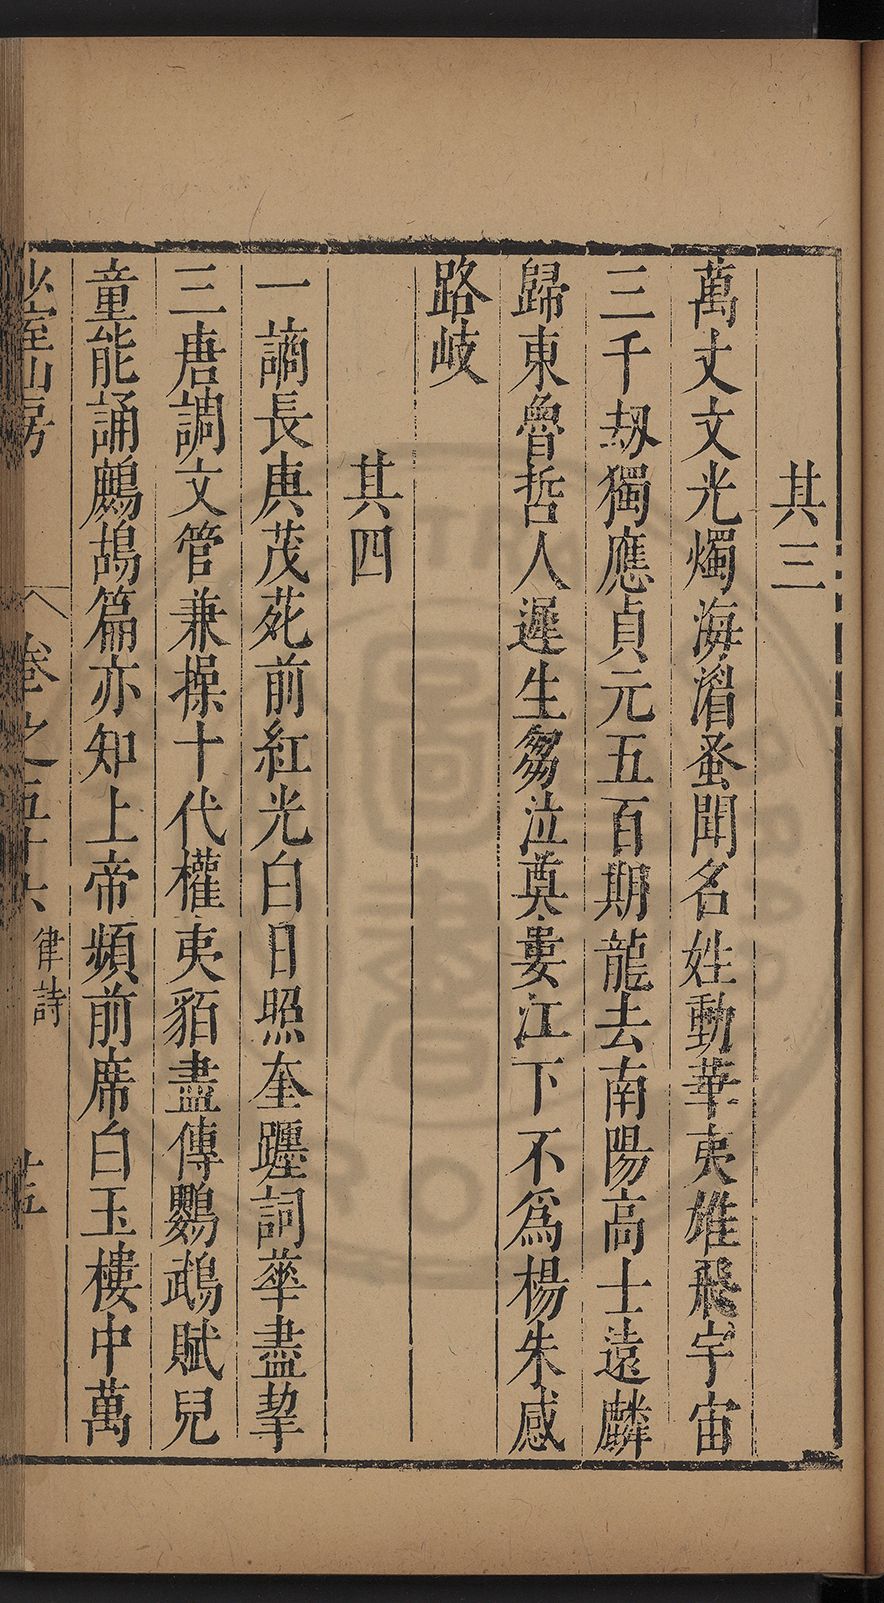 其三
萬丈文光燭海湄蚤聞名姓動華夷雄飛宇宙
三千刼獨應貞元五百期龍去南陽高士遠麟
歸東魯哲人遲生芻泣奠婁江下不爲楊朱感
路岐
其四
一謫長庚茂苑前紅光白日照奎躔詞華盡挈
三唐調文管兼操十代權夷貊盡傳鸚鵡賦兒
童能誦鷓鴣篇亦知上帝頻前席白玉樓中萬
少室山房 卷之五十六 律詩